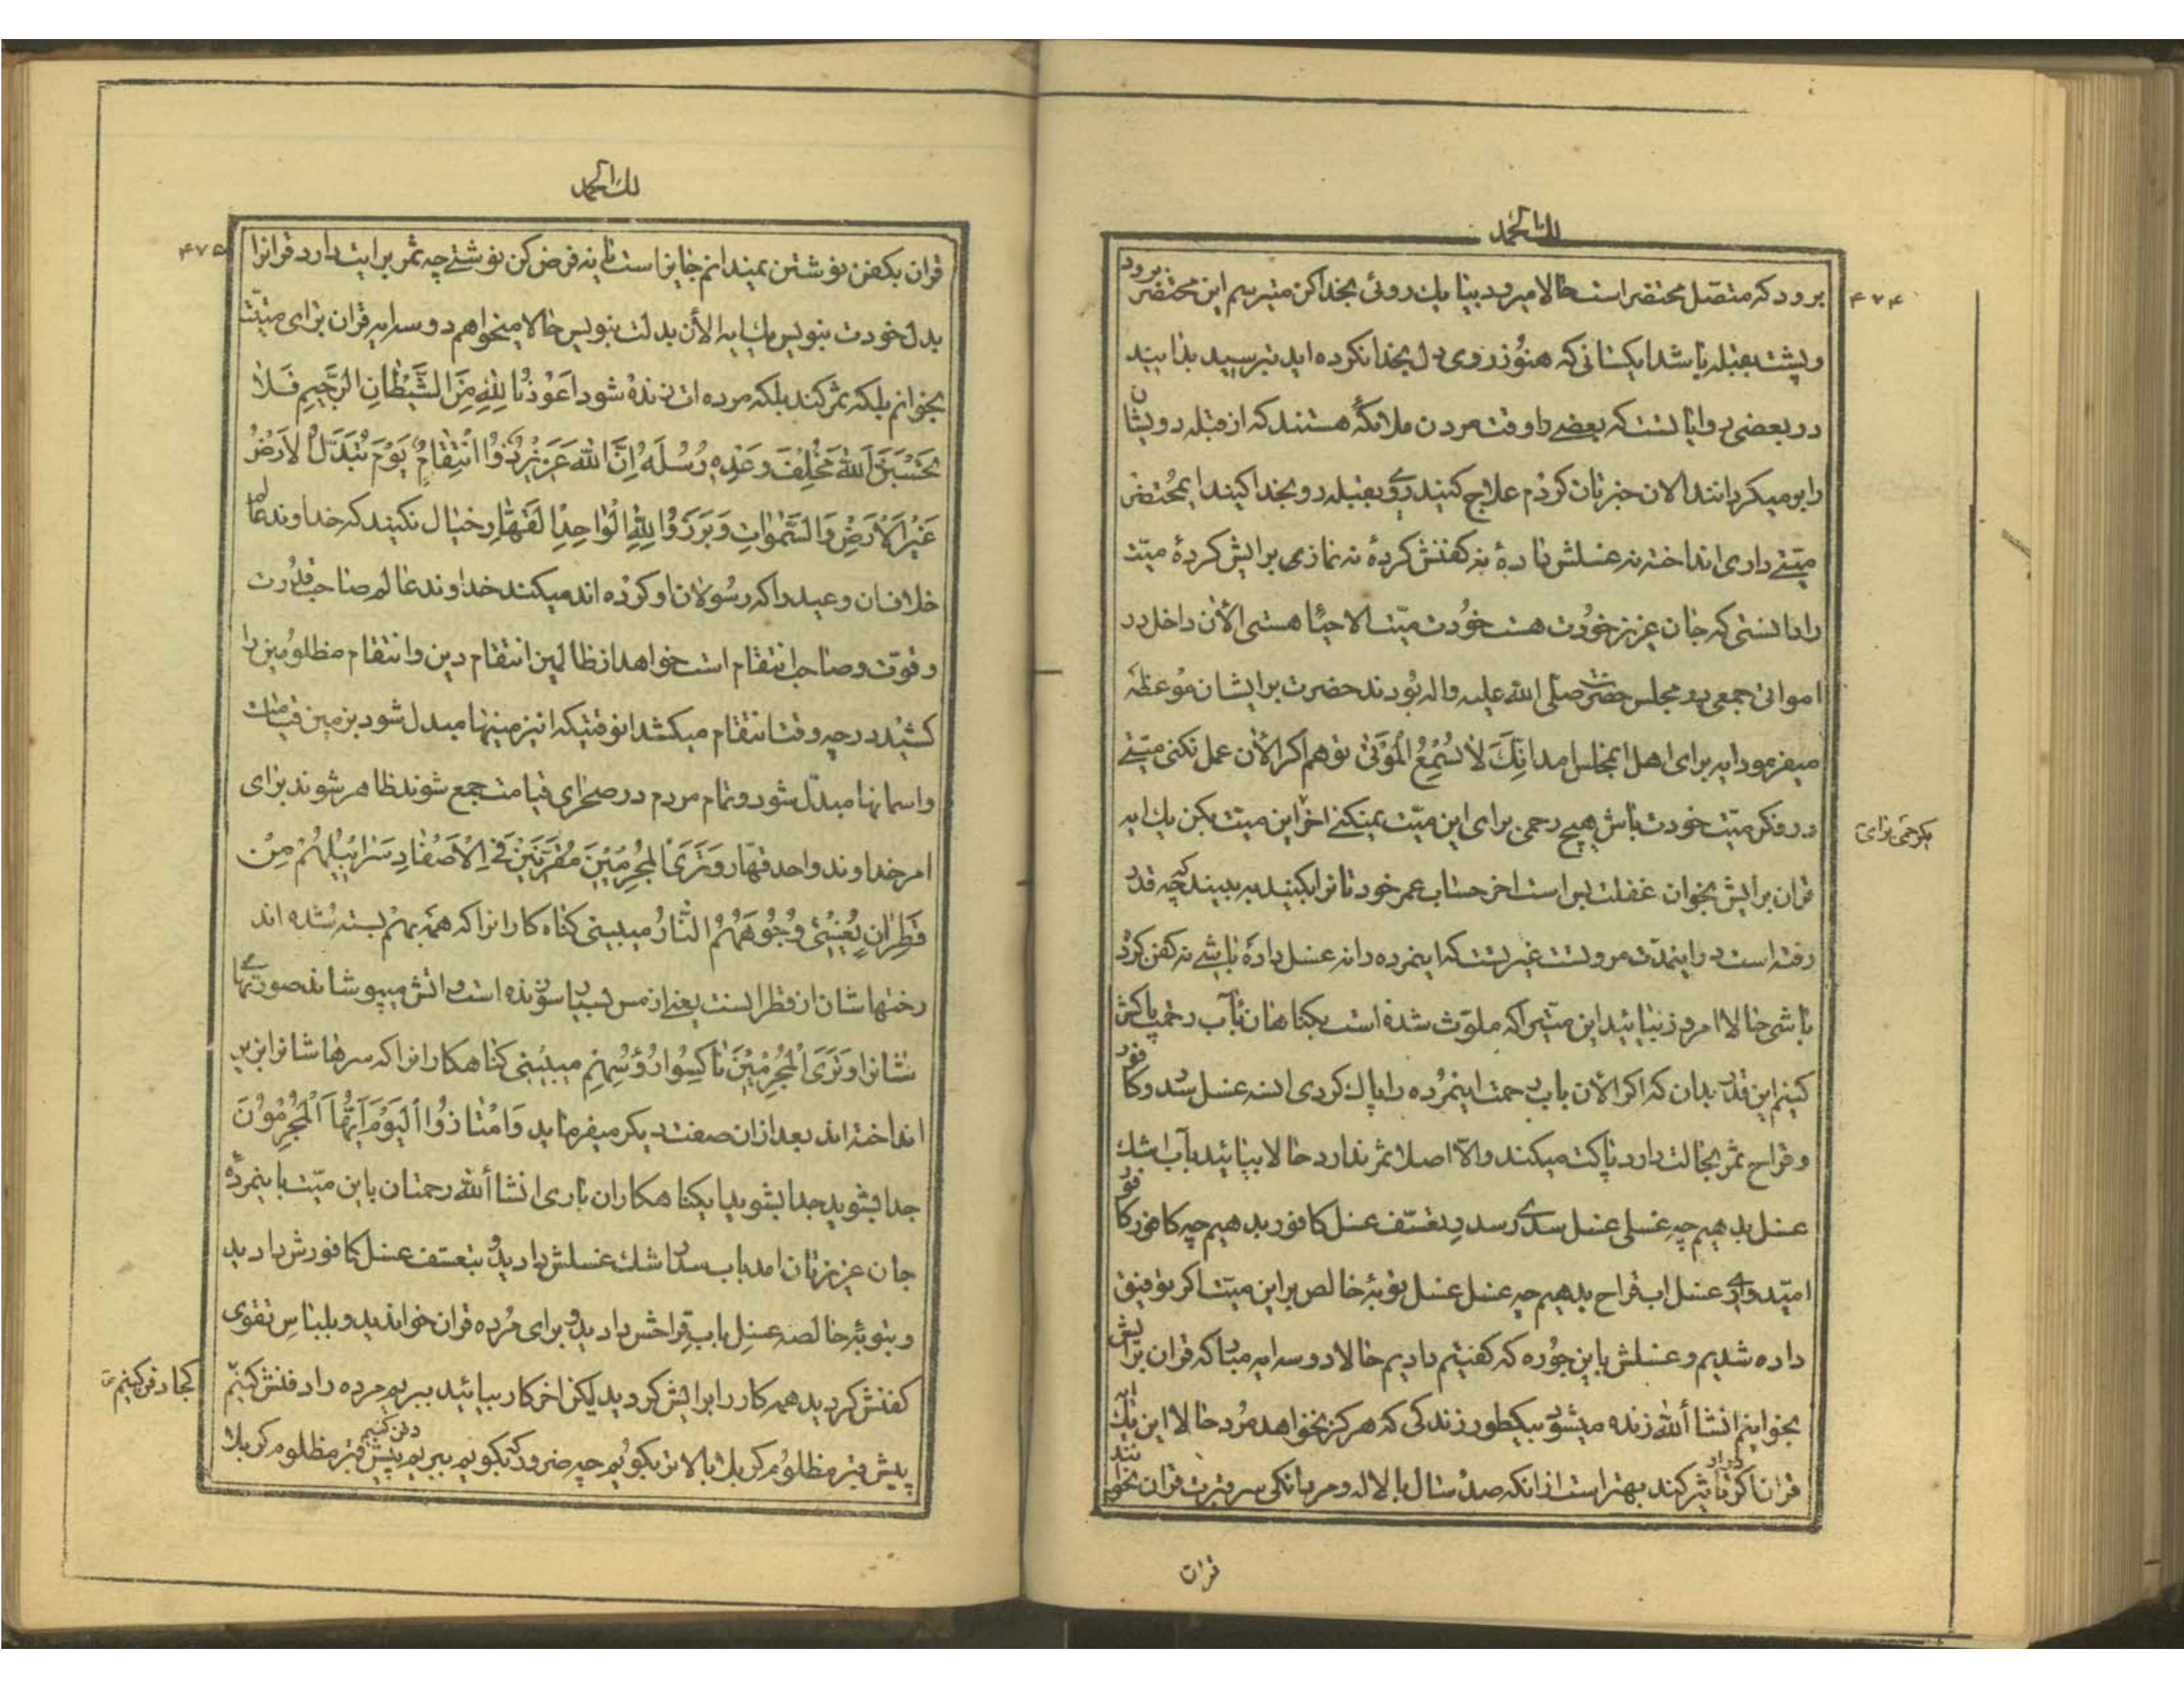 لك الحمد
۴۷۴
برود که متصل محتضر است حالا میرود بیا یك روئی بخدا کن میترسم این محتضر برود
و پشت بقبله باشد ایکسانی که هنوز روی دل بخدا نکرده اید بترسید بدانید
در بعضی روایاتست که بعضی را وقت مردن ملائکه هستند که از قبله رویشان
را برمیگردانند الان خبرتان کردم علاج کنید روی بقبله رو بخدا کنید ایمحتضر
میّتی داری انداخته نه غسلش دادهٔ نه کفنش کردهٔ نه نمازی برایش کردهٔ میّت
را دانستی که جان عزیز خودت هست خودت میّت الاحیاء هستی الأن داخل در
امواتی جمعی در مجلس حضرت صلی الله علیه واله بودند حضرت برایشان موعظه
میفرمود ایه برای اهل ایمجلس امد انك لا تسمع الموتی تو هم اگر الأن عمل نکنی میّتی
در فکر میّت خودت باش هیچ رحمی برای این میّت نمیکنی اخر این میت بکن یك ایه
قران برایش بخوان غفلت بس است اخر حساب عمر خودتانرا بکنید به بینید که چه قدر
رفته است در اینمدّت مروّتست غیرتست که اینمرده را نه غسل دادهٔ باشی نه کفن کرده
باشی حالا امروز بیائید این میّتیرا که ملوّث شده است بگناهان بآب رحمت پاکش
کنیم این قدر بدان که اگر الأن باب رحمت اینمرده را پاك کردی البته غسل سدر و کافور
و قراح ثمر بحالت دارد پاکت میکند والّا اصلا ثمر ندارد حالا بیائید بآب اشك
غسل بدهیم چه غسلی غسل سدری سدر تعسّف غسل کافور بدهیم چه کافور کافور
امیدواری غسل اب قراح بدهیم چه غسل غسل توبهٔ خالص بر این میّت اگر توفیق
داده شدیم و غسلش باین جوره که گفتیم دادیم حالا دو سه ایه مبارکه قران برایش
بخوانیم انشاأالله زنده میشود بیکطور زندگی که هرگز نخواهد مرد حالا این یك ایه
قران اگر تأثیر کند بهتر است از انکه صد سال با لاله و مردنگی سر قبرت قران بخوانند
قران
لك الحمد
۴۷۵
قران بکفن نوشتن نمیدانم جایز است یا نه فرض کن نوشتی چه ثمر برایت دارد قرانرا
بدل خودت بنویس یك ایه الأن بدلت بنویس حالا میخواهم دو سه ایه قران برای میّتت
بخوانم بلکه ثمر کند بلکه مرده ات زنده شود اَعُوذُ بِاللهِ مِنَ الشَّیْطَانِ الرَّجِیمِ فَلَا
تَحْسَبَنَّ اللهَ مُخْلِفَ وَعْدِهِ رُسُلَهُ اِنَّ اللهَ عَزِیزٌ ذُوا انْتِقَامٍ یَوْمَ تُبَدَّلُ الْاَرْضُ
غَیْرَ الْاَرْضِ وَالسَّمٰوَاتِ وَبَرَزُوا لِلّٰهِ الْوَاحِدِ الْقَهّٰارِ خیال نکنید که خداوند عالم
خلاف ان وعید را که رسولان او کرده اند میکند خداوند عالم صاحب قدرت
و قوّت و صاحب انتقام است خواهد از ظالمین انتقام دین و انتقام مظلومین را
کشید در چه وقت انتقام میکشد انوقتیکه این زمینها مبدل شود بزمین قیامت
و اسمانها مبدّل شود و تمام مردم در صحرای قیامت جمع شوند ظاهر شوند برای
امر خداوند واحد قهّار وَتَرَی الْمُجْرِمِینَ مُقَرَّنِینَ فِی الْاَصْفَادِ سَرَابِیلُهُمْ مِنْ
قَطِرَانٍ یُغْشَی وُجُوهَهُمُ النَّارُ میبینی گناه کارانرا که همه بهم بسته شده اند
رختهاشان از قطرانست یعنی از مس بسیار سوزنده است و اتش میپوشاند صورتهای
شانرا وَتَرَی الْمُجْرِمِینَ نَاکِسُوا رُؤُسِهِمْ میبینی گناهکارانرا که سرهاشانرا بزیر
انداخته اند بعد ازان صفت دیگر میفرماید وَامْتَازُوا الْیَوْمَ اَیُّهَا الْمُجْرِمُونَ
جدا بشوید جدا بشوید ایگناهکاران باری انشاأالله رحمتان باین میّت باینمردهٔ
جان عزیزتان امد باب سدر اشك غسلش دادید و بتعسّف غسل کافورش دادید
و بتوبهٔ خالصه غسل باب قراحش دادید و برای مرده قران خواندید و بلباس تقوی
کفنش کردید همه کار را برایش کردید لیکن اخر کار بیائید ببریم مرده را دفنش کنیم کجا دفن کنیم
پیش قبر مظلوم کربلا بالاتر بگویم چه ضرور که بگویم ببریم پیش قبر مظلوم کربلا دفن کنیم